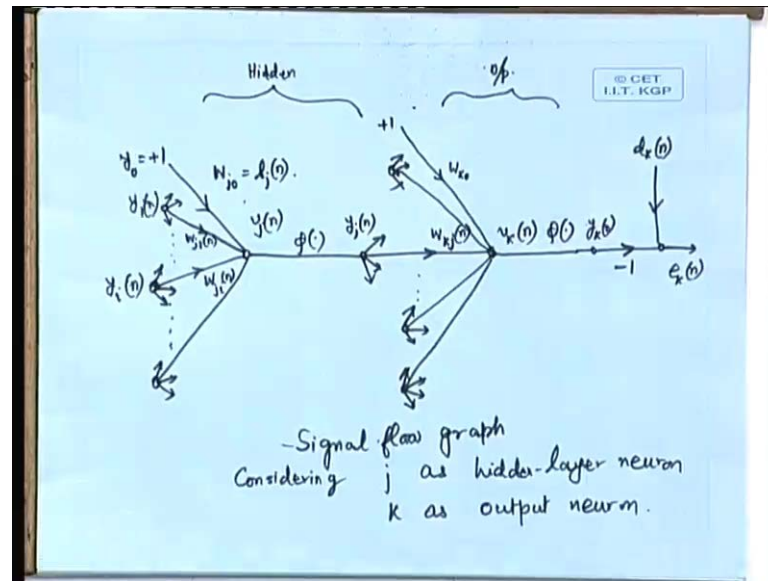 Hidden
o/p.
© CET
I.I.T. KGP
+1
y₀ = +1
W_j0 = b_j(n).
W_k0
d_k(n)
y_1(n)
w_j1(n)
v_j(n)
φ(·)
y_j(n)
W_kj(n)
v_k(n)
φ(·)
y_k(n)
-1
e_k(n)
y_i(n)
W_ji(n)
-Signal flow graph
Considering j as hidden-layer neuron
k as output neuron.